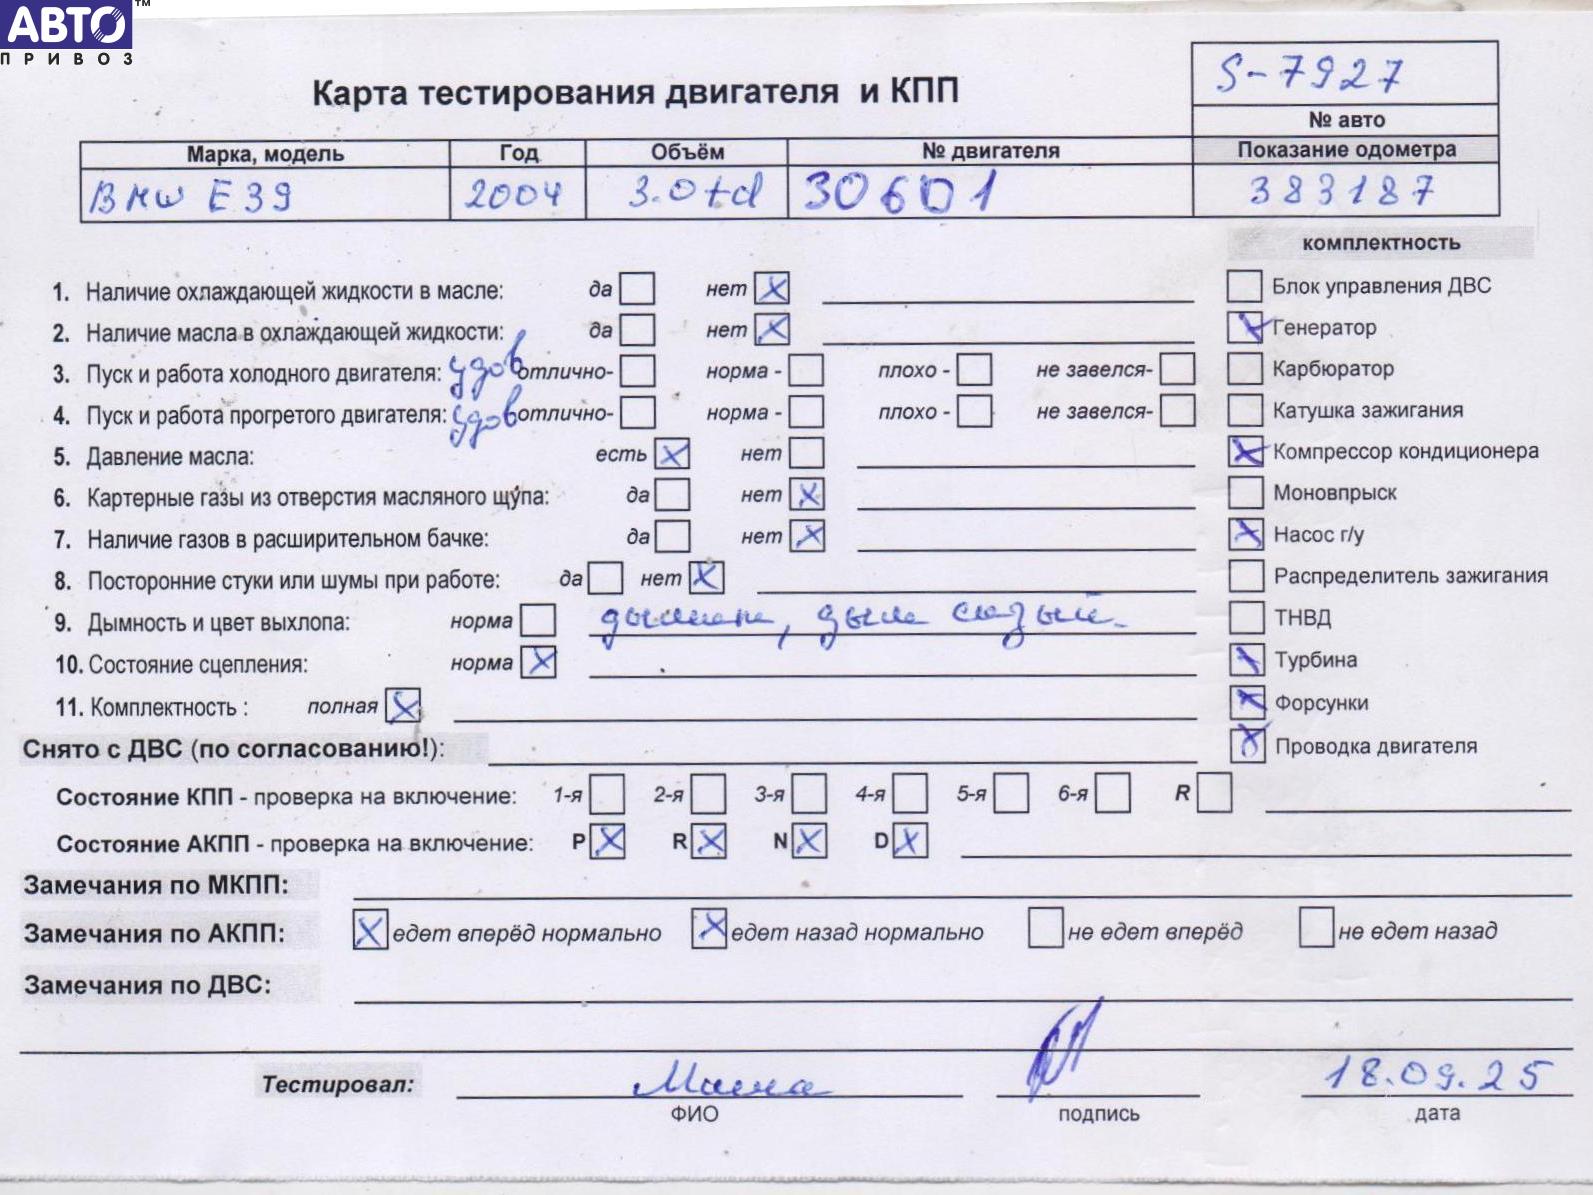 АВТО™
ПРИВОЗ
S-7927
Карта тестирования двигателя и КПП
№ авто
Марка, модель Год Объём № двигателя Показание одометра
BMW E39 2004 3.0td 30601 383187
комплектность
1. Наличие охлаждающей жидкости в масле: да нет X Блок управления ДВС
2. Наличие масла в охлаждающей жидкости: да нет X Генератор X
3. Пуск и работа холодного двигателя: удов отлично- норма - плохо - не завелся- Карбюратор
4. Пуск и работа прогретого двигателя: удов отлично- норма - плохо - не завелся- Катушка зажигания
5. Давление масла: есть X нет X Компрессор кондиционера
6. Картерные газы из отверстия масляного щупа: да нет X Моновпрыск
7. Наличие газов в расширительном бачке: да нет X X Насос г/у
8. Посторонние стуки или шумы при работе: да нет X Распределитель зажигания
9. Дымность и цвет выхлопа: норма дымит, дым сизый. ТНВД
10. Состояние сцепления: норма X X Турбина
11. Комплектность : полная X X Форсунки
Снято с ДВС (по согласованию!): X Проводка двигателя
Состояние КПП - проверка на включение: 1-я 2-я 3-я 4-я 5-я 6-я R
Состояние АКПП - проверка на включение: P X R X N X D X
Замечания по МКПП:
Замечания по АКПП: X едет вперёд нормально X едет назад нормально не едет вперёд не едет назад
Замечания по ДВС:
Тестировал: 18.09.25
ФИО подпись дата